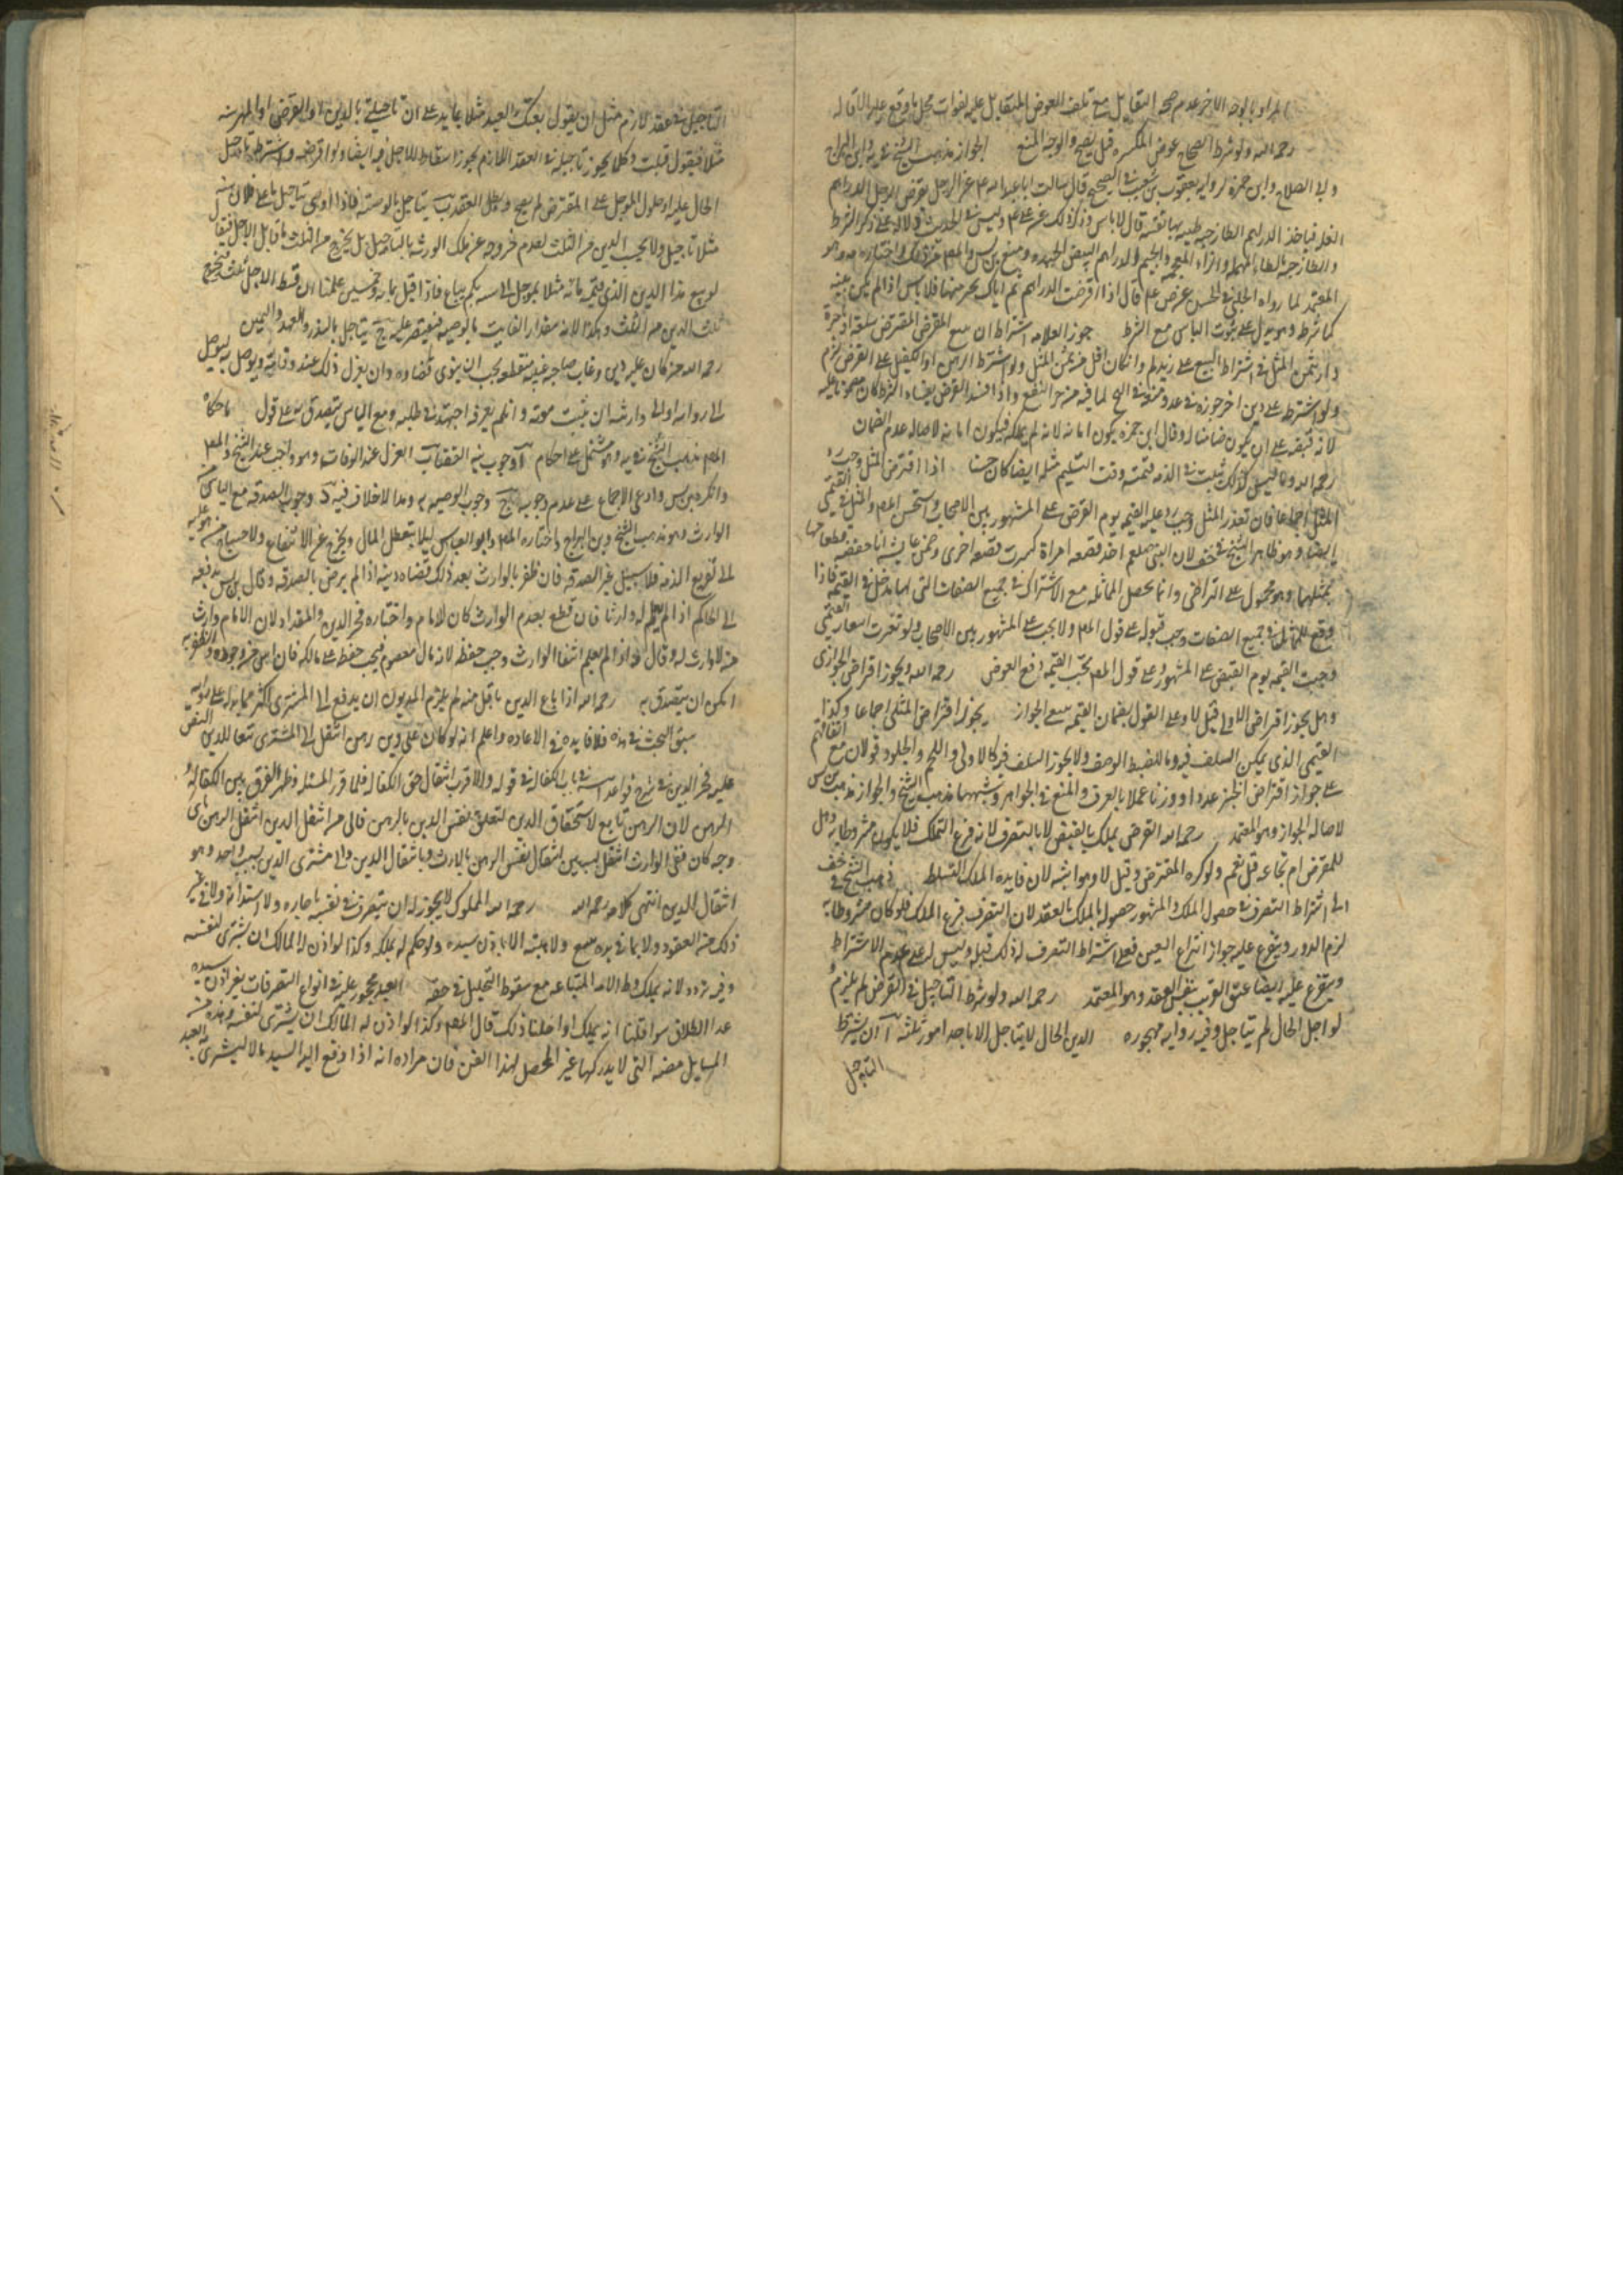 المراد بالوجه الاخر عدم صحه التقايل مع تلف العوض المتقابل عليه لفوات محل ما وقع عليه الاقاله
رحمه الله ولو شرط الصحاح عوض المكسره قيل يصح والوجه المنع الجواز مذهب الشيخ في يه وابن البراج
وابي الصلاح وابن حمزه لروايه يعقوب بن شعيب في الصحيح قال سالت ابا عبد الله عم عن الرجل يقرض الرجل الدراهم
الغله فياخذ الدراهم الطازجيه طيبه بها نفسه قال لا باس وذكر ذلك عن علي عم وليس في الحديث دلاله على ذكر الشرط
والطازجيه بالطاء المهمله والزاء المعجمه والجيم الدراهم البيض الجيده ومنع بن س والمص من ذلك واختاره وهو
المعتمد لما رواه الحلبي في الحسن عن ص عم قال اذا اقرضت الدراهم ثم اتاك بخير منها فلا باس اذا لم يكن بينه
كما شرط وهو يدل على ثبوت الباس مع الشرط جوز العلامه اشتراط ان يبيع المقرض المقترض سلعه او اجره
دار بثمن المثل في اشتراط البيع على زيد له وان كان اقل من ثمن المثل ولو اشترط الرهن او الكفيل على القرض لزم
ولو اشترط على دين اخر جوزه في عد ومنعه في لما فيه من جر النفع واذا فسد القرض بفساد الشرط كان مضمونا عليه
لانه قبضه على ان يكون ضامنا له وقال ابن حمزه يكون امانه لانه لم يملكه فيكون امانه لاصاله عدم الضمان
رحمه الله وما ليس كذلك يثبت في الذمه قيمته وقت التسليم مثله ايضا كان حسنا اذا اقترض المثل وجب رد
المثل اجماعا فان تعذر المثل وجب رد عليه القيمه يوم القرض على المشهور بين الاصحاب واستحسن المص المثل في القيمي
ايضا وهو ظاهر الشيخ في خف لان النبي صلعم اخذ قصعه امراة كسرت قصعه اخرى
بمثلها وهو محمول على التراضي وانما يحصل المماثله مع الاشتراك في جميع الصفات التي لها مدخل في القيمه فاذا
وقع المماثله في جميع الصفات وجب قبوله على قول المص ولا يجب على المشهور بين الاصحاب ولو تغيرت اسعار القيمي
وجبت القيمه يوم القبض على المشهور وعلى قول المص تجب القيمه دفع العوض رحمه الله ويجوز اقراض الجواري
وهل يجوز اقراض اللالي قيل لا وعلى القول بضمان القيمه ينبغي الجواز يجوز اقراض المثلي اجماعا وكذا
القيمي الذي يمكن السلف فيه وما لا يضبط الوصف ولا يجوز السلف فيه كاللالي واللحم والجلود قولان مع اتفاقهم
على جواز اقتراض الخبز عددا ووزنا عملا بالعرف والمنع في الجواهر وشبهها مذهب الشيخ والجواز مذهب بن س
لاصاله الجواز وهو المعتمد رحمه الله القرض يملك بالقبض لا بالتصرف لانه فرع التملك فلا يكون مشروطا به وهل
للمقرض ارتجاعه قيل نعم ولو كره المقترض وقيل لا وهو اشبه لان فايده الملك التسلط ذهب الشيخ في خف
الى اشتراط التصرف في حصول الملك والمشهور حصوله بالملك بالعقد لان التصرف فرع الملك فلو كان مشروطا به
لزم الدور ويتفرع عليه جواز انتزاع العين فعلى اشتراط التصرف له ذلك قبله وليس له على عدم الاشتراط
ويتفرع عليه ايضا عتق القريب بنفس العقد وهو المعتمد رحمه الله ولو شرط التاجيل في القرض لم يلزم
لو اجل الحال لم يتاجل وفيه روايه مهجوره الدين الحال لا يتاجل الا باحد امور ثلثه آ ان يشترط
التاجيل
التاجيل في عقد لازم مثل ان يقول بعتك العبد مثلا بمايه على ان تاجيل بالدين او القرض او المهر سنه
مثلا فيقول قبلت وكلما يجوز تاجيله في العقد اللازم يجوز اسقاط الاجل فيه ايضا ولو اقرضه واشترط تاجيل
الحال عليه او حلول المؤجل على المقترض لم يصح وبطل العقد ب يتاجل بالوصيه فاذا اوصى بتاجيل ما على فلان سنه
مثلا تاجيل ولا يجب الدين من الثلث لعدم خروجه عن ملك الورثه بالتاجيل بل يخرج من الثلث ما قابل الاجل فيقال
لو بيع هذا الدين الذي قيمته مائه مثلا بمؤجل الى سنه بكم يباع فاذا قيل بمايه وخمسين علمنا ان قسط الاجل ثلث فيخرج
ثلث الدين من الثلث وهكذا لانه مقدار الفايت بالوصيه فيقتصر عليه ج يتاجل بالنذر والعهد واليمين
رحمه الله من كان عليه دين وغاب صاحبه غيبه منقطعه يجب ان ينوي قضاءه وان يعزل ذلك عند وفاته ويوصي به ليوصل
الى ربه او الى وارثه ان ثبت موته وان لم يعرفه اجتهد في طلبه ومع الياس يتصدق به على قول ما حكاه
المص مذهب الشيخ في يه وهو مشتمل على احكام آ وجوب نيه القضا ب العزل عند الوفاه وهو واجب عند الشيخ والمص
وانكره بن س وادعى الاجماع على عدم وجوبه ج وجوب الوصيه به وهذا لا خلاف فيه د وجوب الصدقه مع الياس من
الوارث وهو مذهب الشيخ وبن البراج واختاره المص وابو العباس ليلا يتعطل المال ويخرج عن الانتفاع ولاحتياج من هو عليه
الى تفريغ الذمه فلا سبيل غير الصدقه فان ظفر بالوارث بعد ذلك قضاه دينه اذا لم يرض بالصدقه وقال بن س يدفعه
الى الحاكم اذا لم يعلم له وارثا فان قطع بعدم الوارث كان للامام واختاره فخر الدين والمقداد لان الامام وارث
من لا وارث له وقال اذا لم يعلم انتفا الوارث وجب حفظه لانه مال معصوم فيجب حفظه على مالكه فان ايس من وجوده والظفر به
امكن ان يتصدق به رحمه الله اذا باع الدين باقل منه لم يلزم المديون ان يدفع الى المشتري اكثر مما بذله على روايه
سبق البحث في هذه فلا فايده في الاعاده واعلم انه لو كان على دين رهن انتقل الى المشتري تبعا للدين النص
عليه فخر الدين في شرح قواعد ابيه في باب الكفاله في قوله والاقرب انتقال حق الكفاله فلما قرر المسئله وظهر الفرق بين الكفاله و
الرهن لان الرهن تابع لاستحقاق الدين لتعلق نفس الدين بالرهن فالى من انتقل الدين انتقل الرهن باي
وجه كان ففي الوارث انتقل بسببين انتقال نفس الرهن بالارث وبانتقال الدين والى مشتري الدين بسبب واحد وهو
انتقال الدين انتهى كلامه رحمه الله رحمه الله المملوك لا يجوز له ان يتصرف في نفسه باجاره ولا استدانه ولا في غير
ذلك من العقود ولا بما في يده ببيع ولا هبه الا باذن سيده ولو حكم له بملكه وكذا لو اذن له المالك ان يشتري لنفسه
وفيه تردد لانه يملك وطئ الامه المبتاعه مع سقوط التحليل في حقه العبد محجور عليه في انواع التصرفات بغير اذن سيده
عدا الطلاق سوا قلنا انه يملك او احلنا ذلك قال المص وكذا لو اذن له المالك ان يشتري لنفسه وهذه من
المسايل مضه التي لا يدركها غير المحصل لهذا الفن فان مراده انه اذا دفع اليه السيد مالا ليشتري به العبد